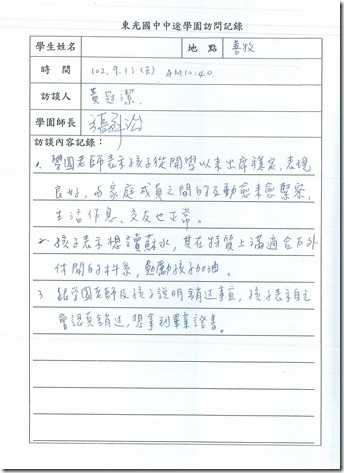 東光國中中途學園訪問記錄
學生姓名 地點 善牧
時間 102.9.13(五) AM10:40.
訪談人 黃冠潔.
學園師長
訪談內容記錄：
1. 學園老師表示孩子從開學以來出席穩定，表現
良好，與家庭成員之間的互動愈來愈緊密，
生活作息、交友也正常。
2. 孩子表示想讀蘇水，其在特質上滿適合戶外
休閒的科系，勉勵孩子加油。
3 跟學園老師及孩子說明銷過事宜，孩子表示自己
會認真銷過，想拿到畢業證書。